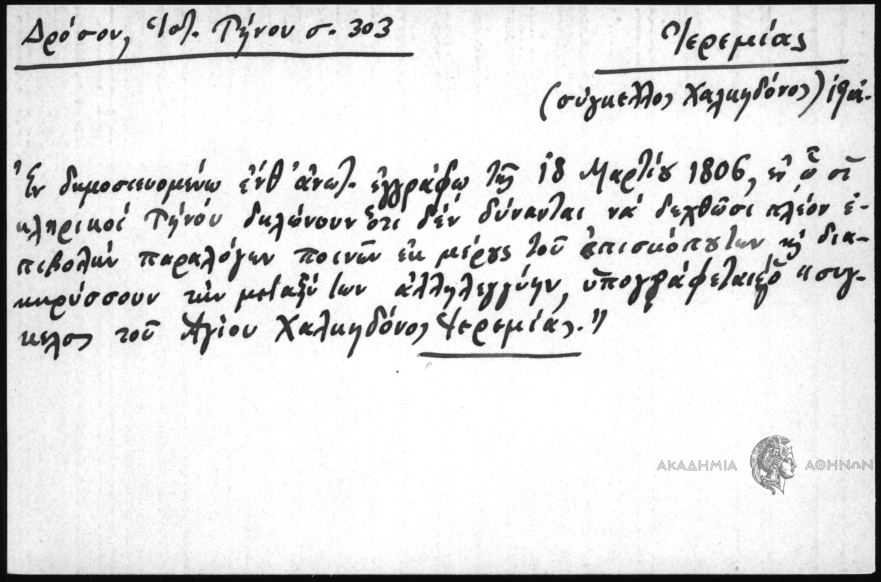 Δρόσου, Ἱστ. Τήνου σ. 303
Ἱερεμίας
(σύγκελλος Χαλκηδόνος)
Ἐν δημοσιευομένῳ ἔνθ' ἀνωτ. ἐγγράφῳ τῆς 18 Μαρτίου 1806, ἐν ᾧ οἱ
κληρικοί Τήνου δηλώνουν ὅτι δέν δύνανται νά δεχθῶσι πλέον ἐ-
πιβολήν παραλόγων ποινῶν ἐκ μέρους τοῦ ἐπισκόπου των κ δια-
κηρύσσουν τήν μεταξύ των ἀλληλεγγύην, ὑπογράφεται ὁ "συγ-
κελος τοῦ Ἁγίου Χαλκηδόνος Ἱερεμίας."
ΑΚΑΔΗΜΙΑ ΑΘΗΝΩΝ